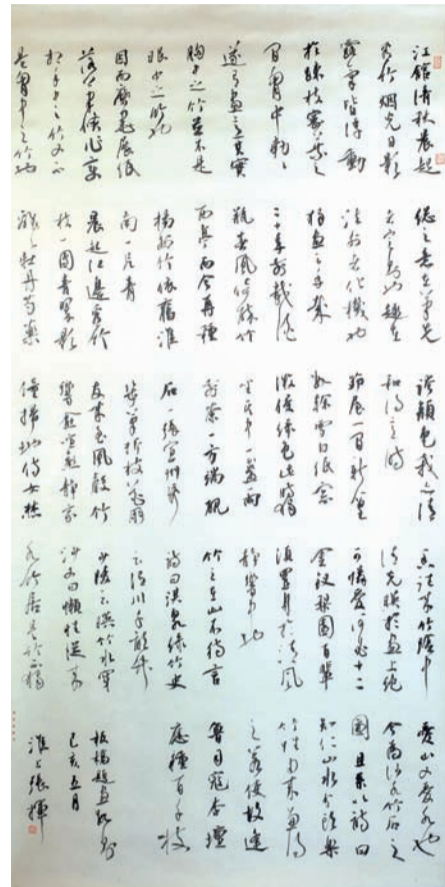 江館清秋晨起
看竹烟光日影
露氣皆浮動
於疎枝密葉之
間胷中勃勃
遂有畫意其實
胸中之竹並不是
眼中之竹也
因而磨墨展紙
落筆倏作變
相手中之竹又不
是胷中之竹也
總之意在筆先
者定則也趣在
法外者化機也
獨畫云乎哉
二十年前載酒
瓶春風倚醉竹
西亭而今再種
揚州竹依舊淮
南一片青
晨起江邊看竹
枝一團青翠影
離離牡丹芍藥
誇顏色我亦清
和得意時
茆屋一間新篁
數竿雪白紙窗
微侵綠色此時獨
坐其中一盞雨
前茶一方端硯
石一張宣州紙
幾筆折枝花朋
友來至風聲竹
響愈喧愈靜家
僮掃地侍女焚
香往來竹陰中
清光映於畫上絕
可憐愛何必十二
金釵梨園百輩
須置身於清風
靜響中也
竹之在山不待言
詩曰淇泉綠竹史
云渭川千畝竹
少陵云映竹水穿
沙又曰懶性從來
水竹居是竹不獨
愛山又愛水也
今為江水竹石之
圖且系以詩曰
知仁山水分頭樂
竹性由來兼得
之若使故逢
魯司寇杏壇
應種百千枝
板橋題畫數則
己亥五月
淮上張輝